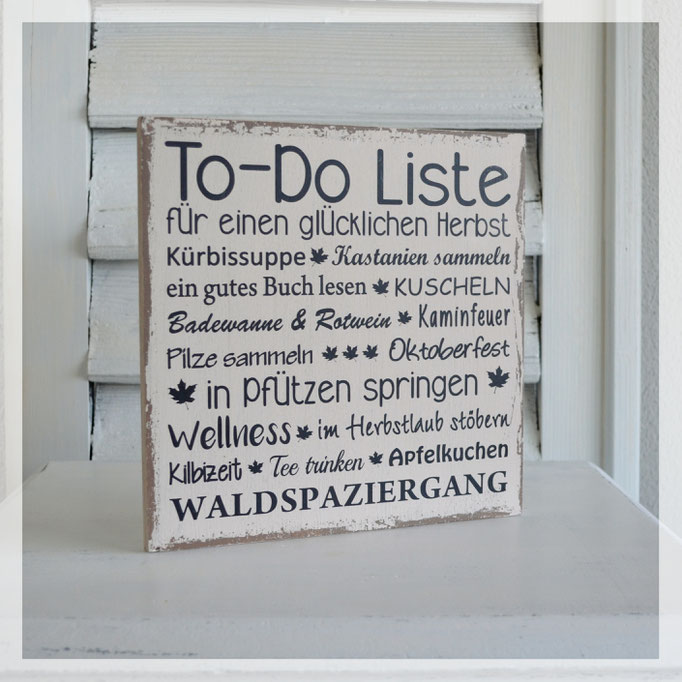 To-Do Liste
für einen glücklichen Herbst
Kürbissuppe Kastanien sammeln
ein gutes Buch lesen KUSCHELN
Badewanne & Rotwein Kaminfeuer
Pilze sammeln Oktoberfest
in Pfützen springen
Wellness im Herbstlaub stöbern
Kilbizeit Tee trinken Apfelkuchen
WALDSPAZIERGANG